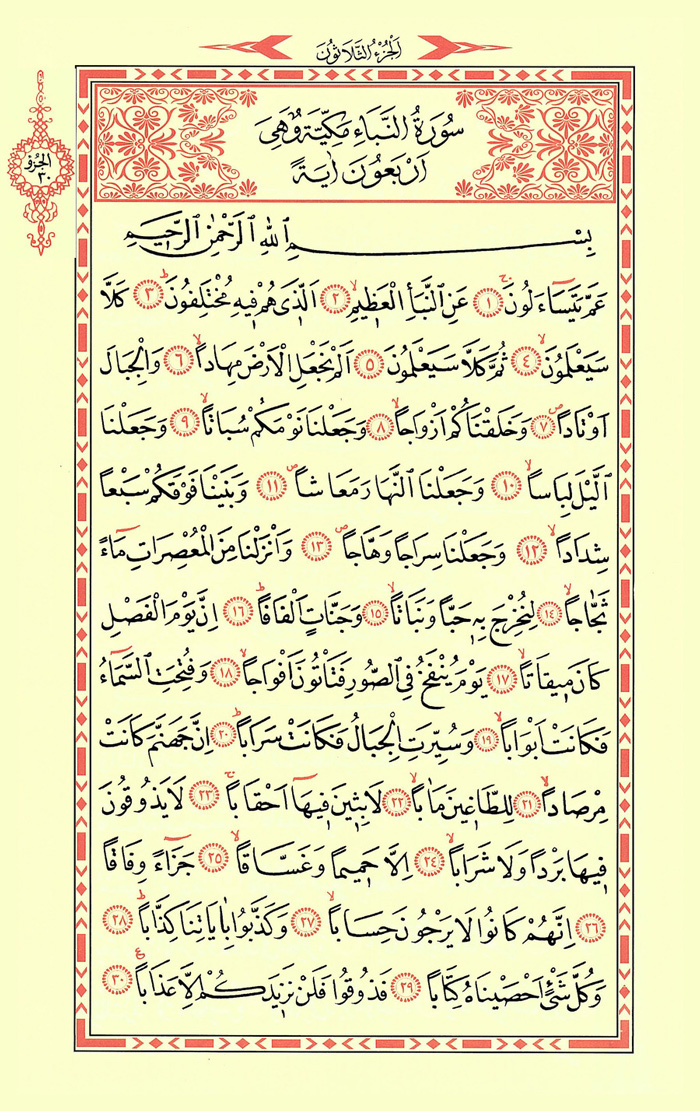 اَلْجُزْءُ الثَّلَاثُونَ
سُورَةُ النَّبَاءِ مَكِّيَّةٌ وَهِيَ
اَرْبَعُونَ اٰيَةً
الجزؤ
٣٠
بِسْمِ اللهِ الرَّحْمٰنِ الرَّحٖيمِ
عَمَّ يَتَسَاءَلُونَۚ ﴿١﴾ عَنِ النَّبَأِ الْعَظٖيمِۙ ﴿٢﴾ اَلَّذٖى هُمْ فٖيهِ مُخْتَلِفُونَؕ ﴿٣﴾ كَلَّا
سَيَعْلَمُونَۙ ﴿٤﴾ ثُمَّ كَلَّا سَيَعْلَمُونَ ﴿٥﴾ اَلَمْ نَجْعَلِ الْاَرْضَ مِهَاداًۙ ﴿٦﴾ وَالْجِبَالَ
اَوْتَاداًۖ ﴿٧﴾ وَخَلَقْنَاكُمْ اَزْوَاجاًۙ ﴿٨﴾ وَجَعَلْنَا نَوْمَكُمْ سُبَاتاًۙ ﴿٩﴾ وَجَعَلْنَا
الَّيْلَ لِبَاساًۙ ﴿١٠﴾ وَجَعَلْنَا النَّهَارَ مَعَاشاًۖ ﴿١١﴾ وَبَنَيْنَا فَوْقَكُمْ سَبْعاً
شِدَاداًۙ ﴿١٢﴾ وَجَعَلْنَا سِرَاجاً وَهَّاجاًۖ ﴿١٣﴾ وَاَنْزَلْنَا مِنَ الْمُعْصِرَاتِ مَٓاءً
ثَجَّاجاًۙ ﴿١٤﴾ لِنُخْرِجَ بِهٖ حَباًّ وَنَبَاتاًۙ ﴿١٥﴾ وَجَنَّاتٍ اَلْفَافاًؕ ﴿١٦﴾ اِنَّ يَوْمَ الْفَصْلِ
كَانَ مٖيقَاتاًۙ ﴿١٧﴾ يَوْمَ يُنْفَخُ فِى الصُّورِ فَتَأْتُونَ اَفْوَاجاًۙ ﴿١٨﴾ وَفُتِحَتِ السَّمَٓاءُ
فَكَانَتْ اَبْوَاباًۙ ﴿١٩﴾ وَسُيِّرَتِ الْجِبَالُ فَكَانَتْ سَرَاباًؕ ﴿٢٠﴾ اِنَّ جَهَنَّمَ كَانَتْ
مِرْصَاداًۙ ﴿٢١﴾ لِلطَّاغٖينَ مَاٰباًۙ ﴿٢٢﴾ لَابِثٖينَ فٖيهَٓا اَحْقَاباًۚ ﴿٢٣﴾ لَا يَذُوقُونَ
فٖيهَا بَرْداً وَلَا شَرَاباًۙ ﴿٢٤﴾ اِلَّا حَمٖيماً وَغَسَّاقاًۙ ﴿٢٥﴾ جَزَٓاءً وِفَاقاً
﴿٢٦﴾ اِنَّهُمْ كَانُوا لَا يَرْجُونَ حِسَاباًۙ ﴿٢٧﴾ وَكَذَّبُوا بِاٰيَاتِنَا كِذَّاباًؕ ﴿٢٨﴾
وَكُلَّ شَیْءٍ اَحْصَيْنَاهُ كِتَاباً ﴿٢٩﴾ فَذُوقُوا فَلَنْ نَزٖيدَكُمْ اِلَّا عَذَاباً ع ﴿٣٠﴾